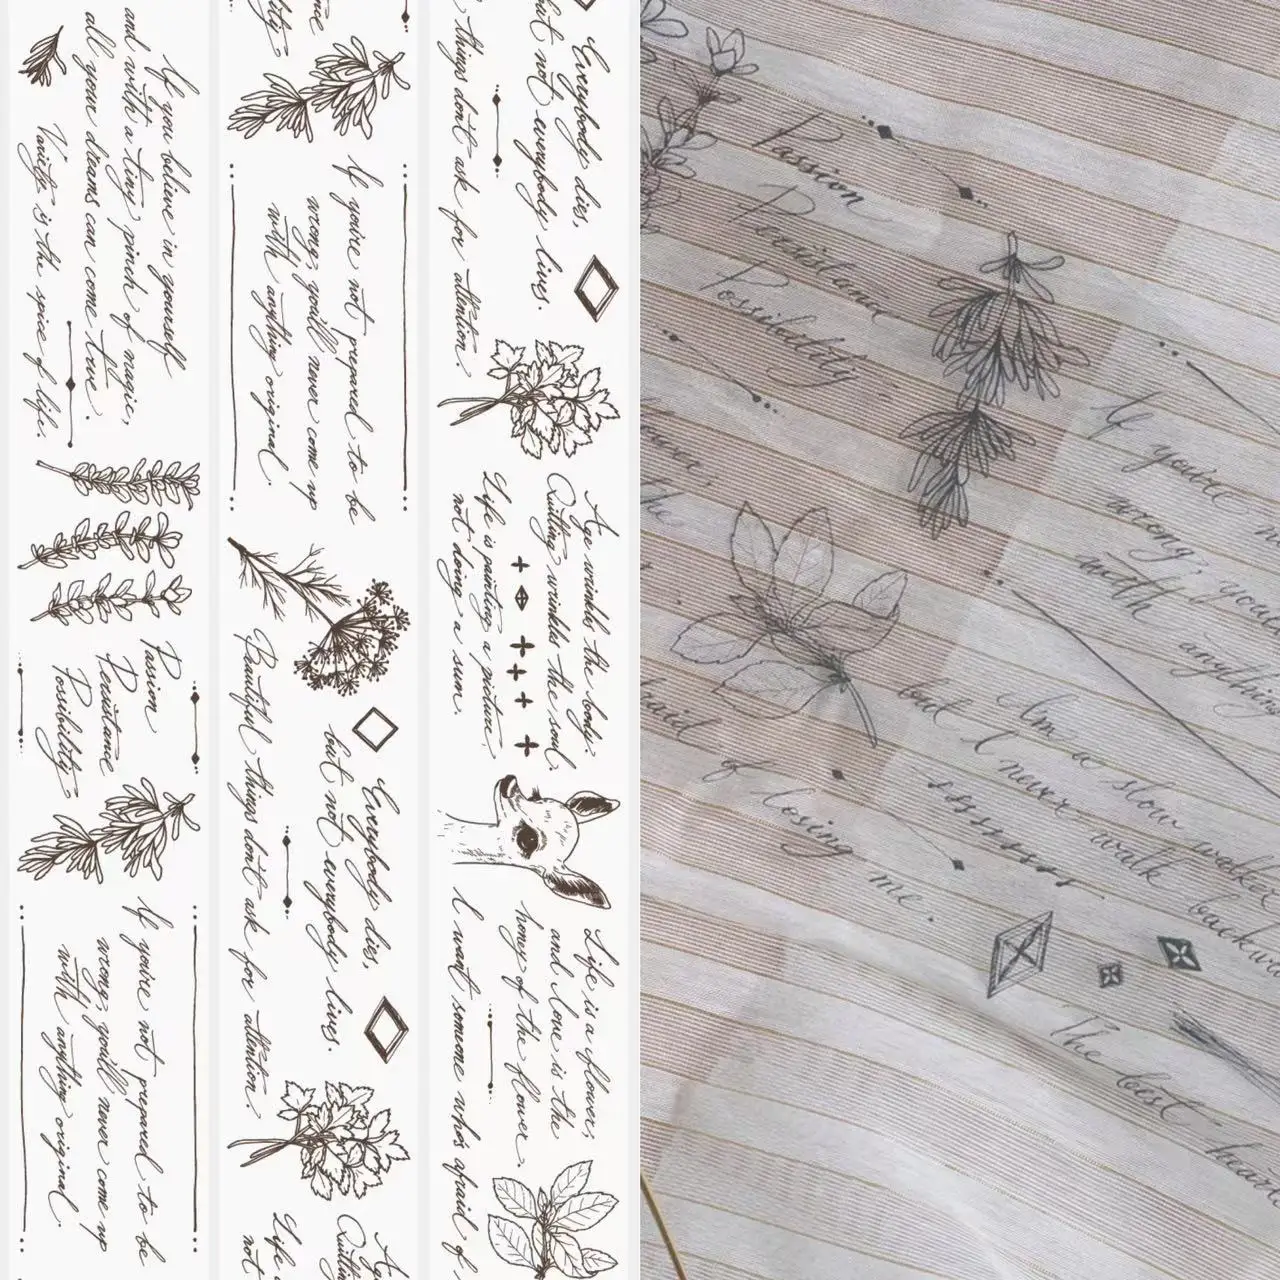 If you believe in yourself
and with a tiny pinch of magic,
all your dreams can come true.
Variety is the spice of life.
Passion
Persistance
Possibility
If you're not prepared to be
wrong, you'll never come up
with anything original.
If you're not prepared to be
wrong, you'll never come up
with anything original.
Everybody dies,
but not everybody lives.
Beautiful things don't ask for attention.
Life is
not
Everybody dies,
but not everybody lives.
things don't ask for attention.
Age wrinkles the body.
Quitting wrinkles the soul.
Life is painting a picture,
not doing a sum.
Life is a flower,
and love is the
honey of the flower.
I want someone who's afraid of
Passion
Persistance
Possibility
If you're
wrong, you'll
with anything
the
I'm a slow walker
but I never walk
afraid of losing me.
The best